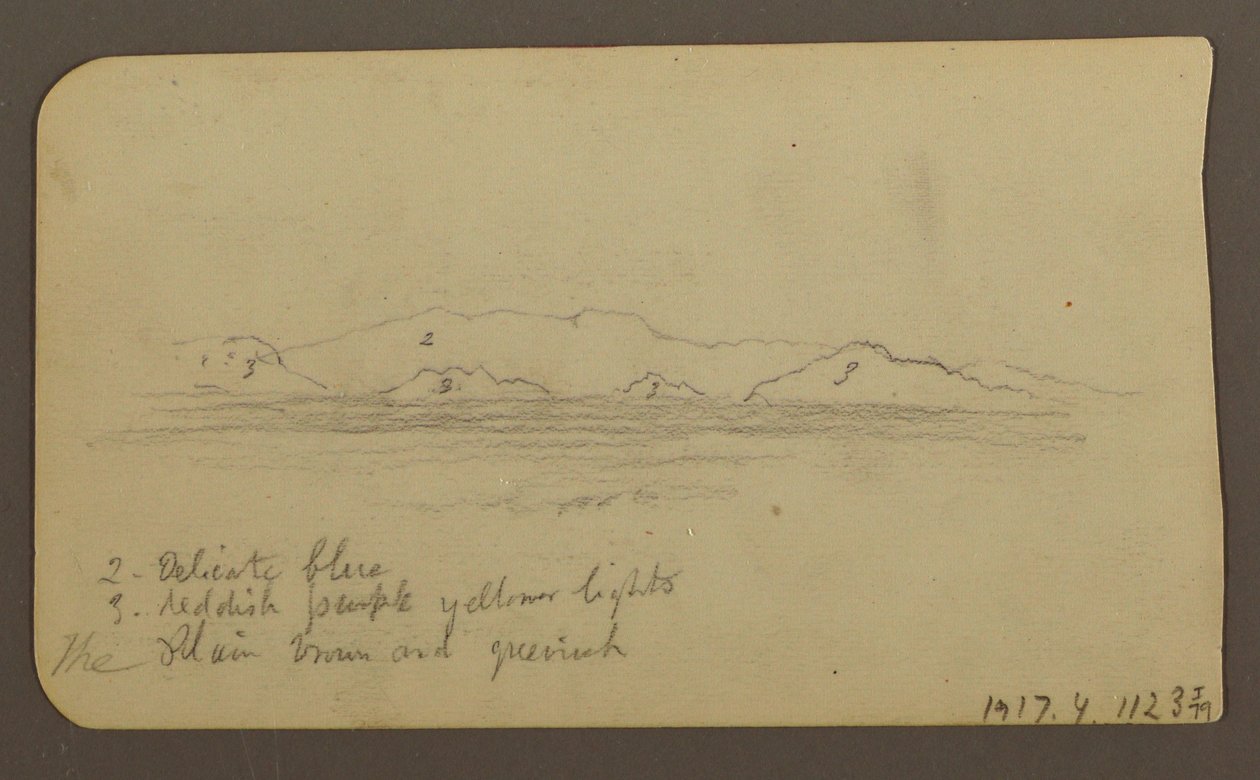 2
3
3
3
3
2 - Delicate blue
3. reddish purple yellower lights
The Plain brown and greenish
1917. 4. 1123 I/79